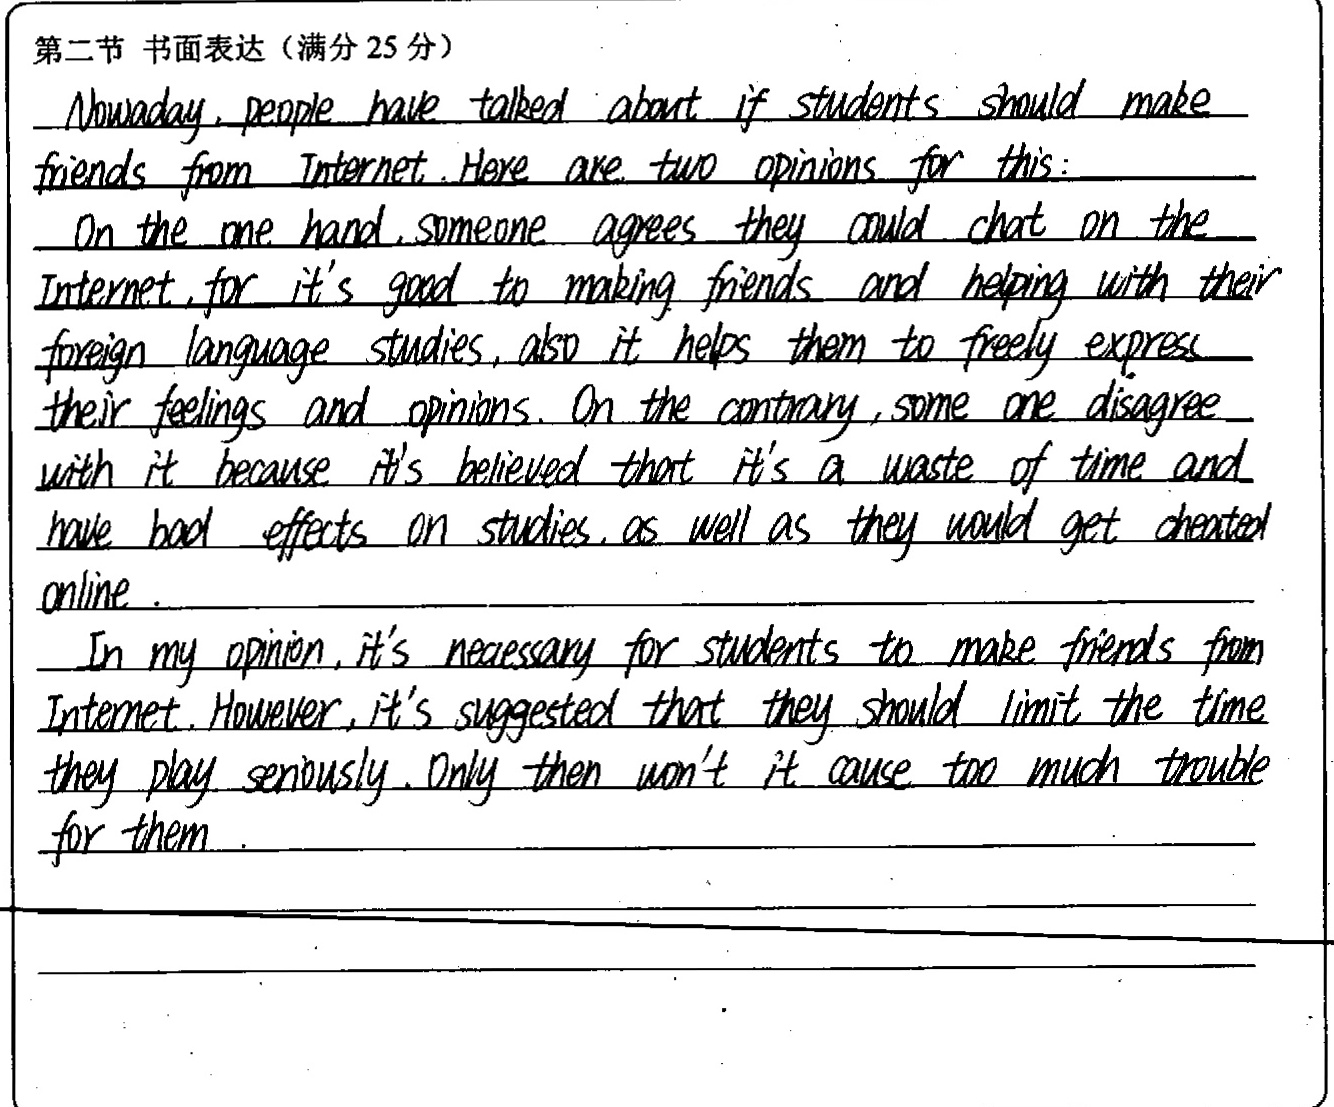 第二节 书面表达（满分 25 分）
Nowaday, people have talked about if students should make
friends from Internet. Here are two opinions for this:
On the one hand, someone agrees they could chat on the
Internet, for it's good to making friends and helping with their
foreign language studies, also it helps them to freely express
their feelings and opinions. On the contrary, some one disagree
with it because it's believed that it's a waste of time and
have bad effects on studies, as well as they would get cheated
online.
In my opinion, it's necessary for students to make friends from
Internet. However, it's suggested that they should limit the time
they play seriously. Only then won't it cause too much trouble
for them.